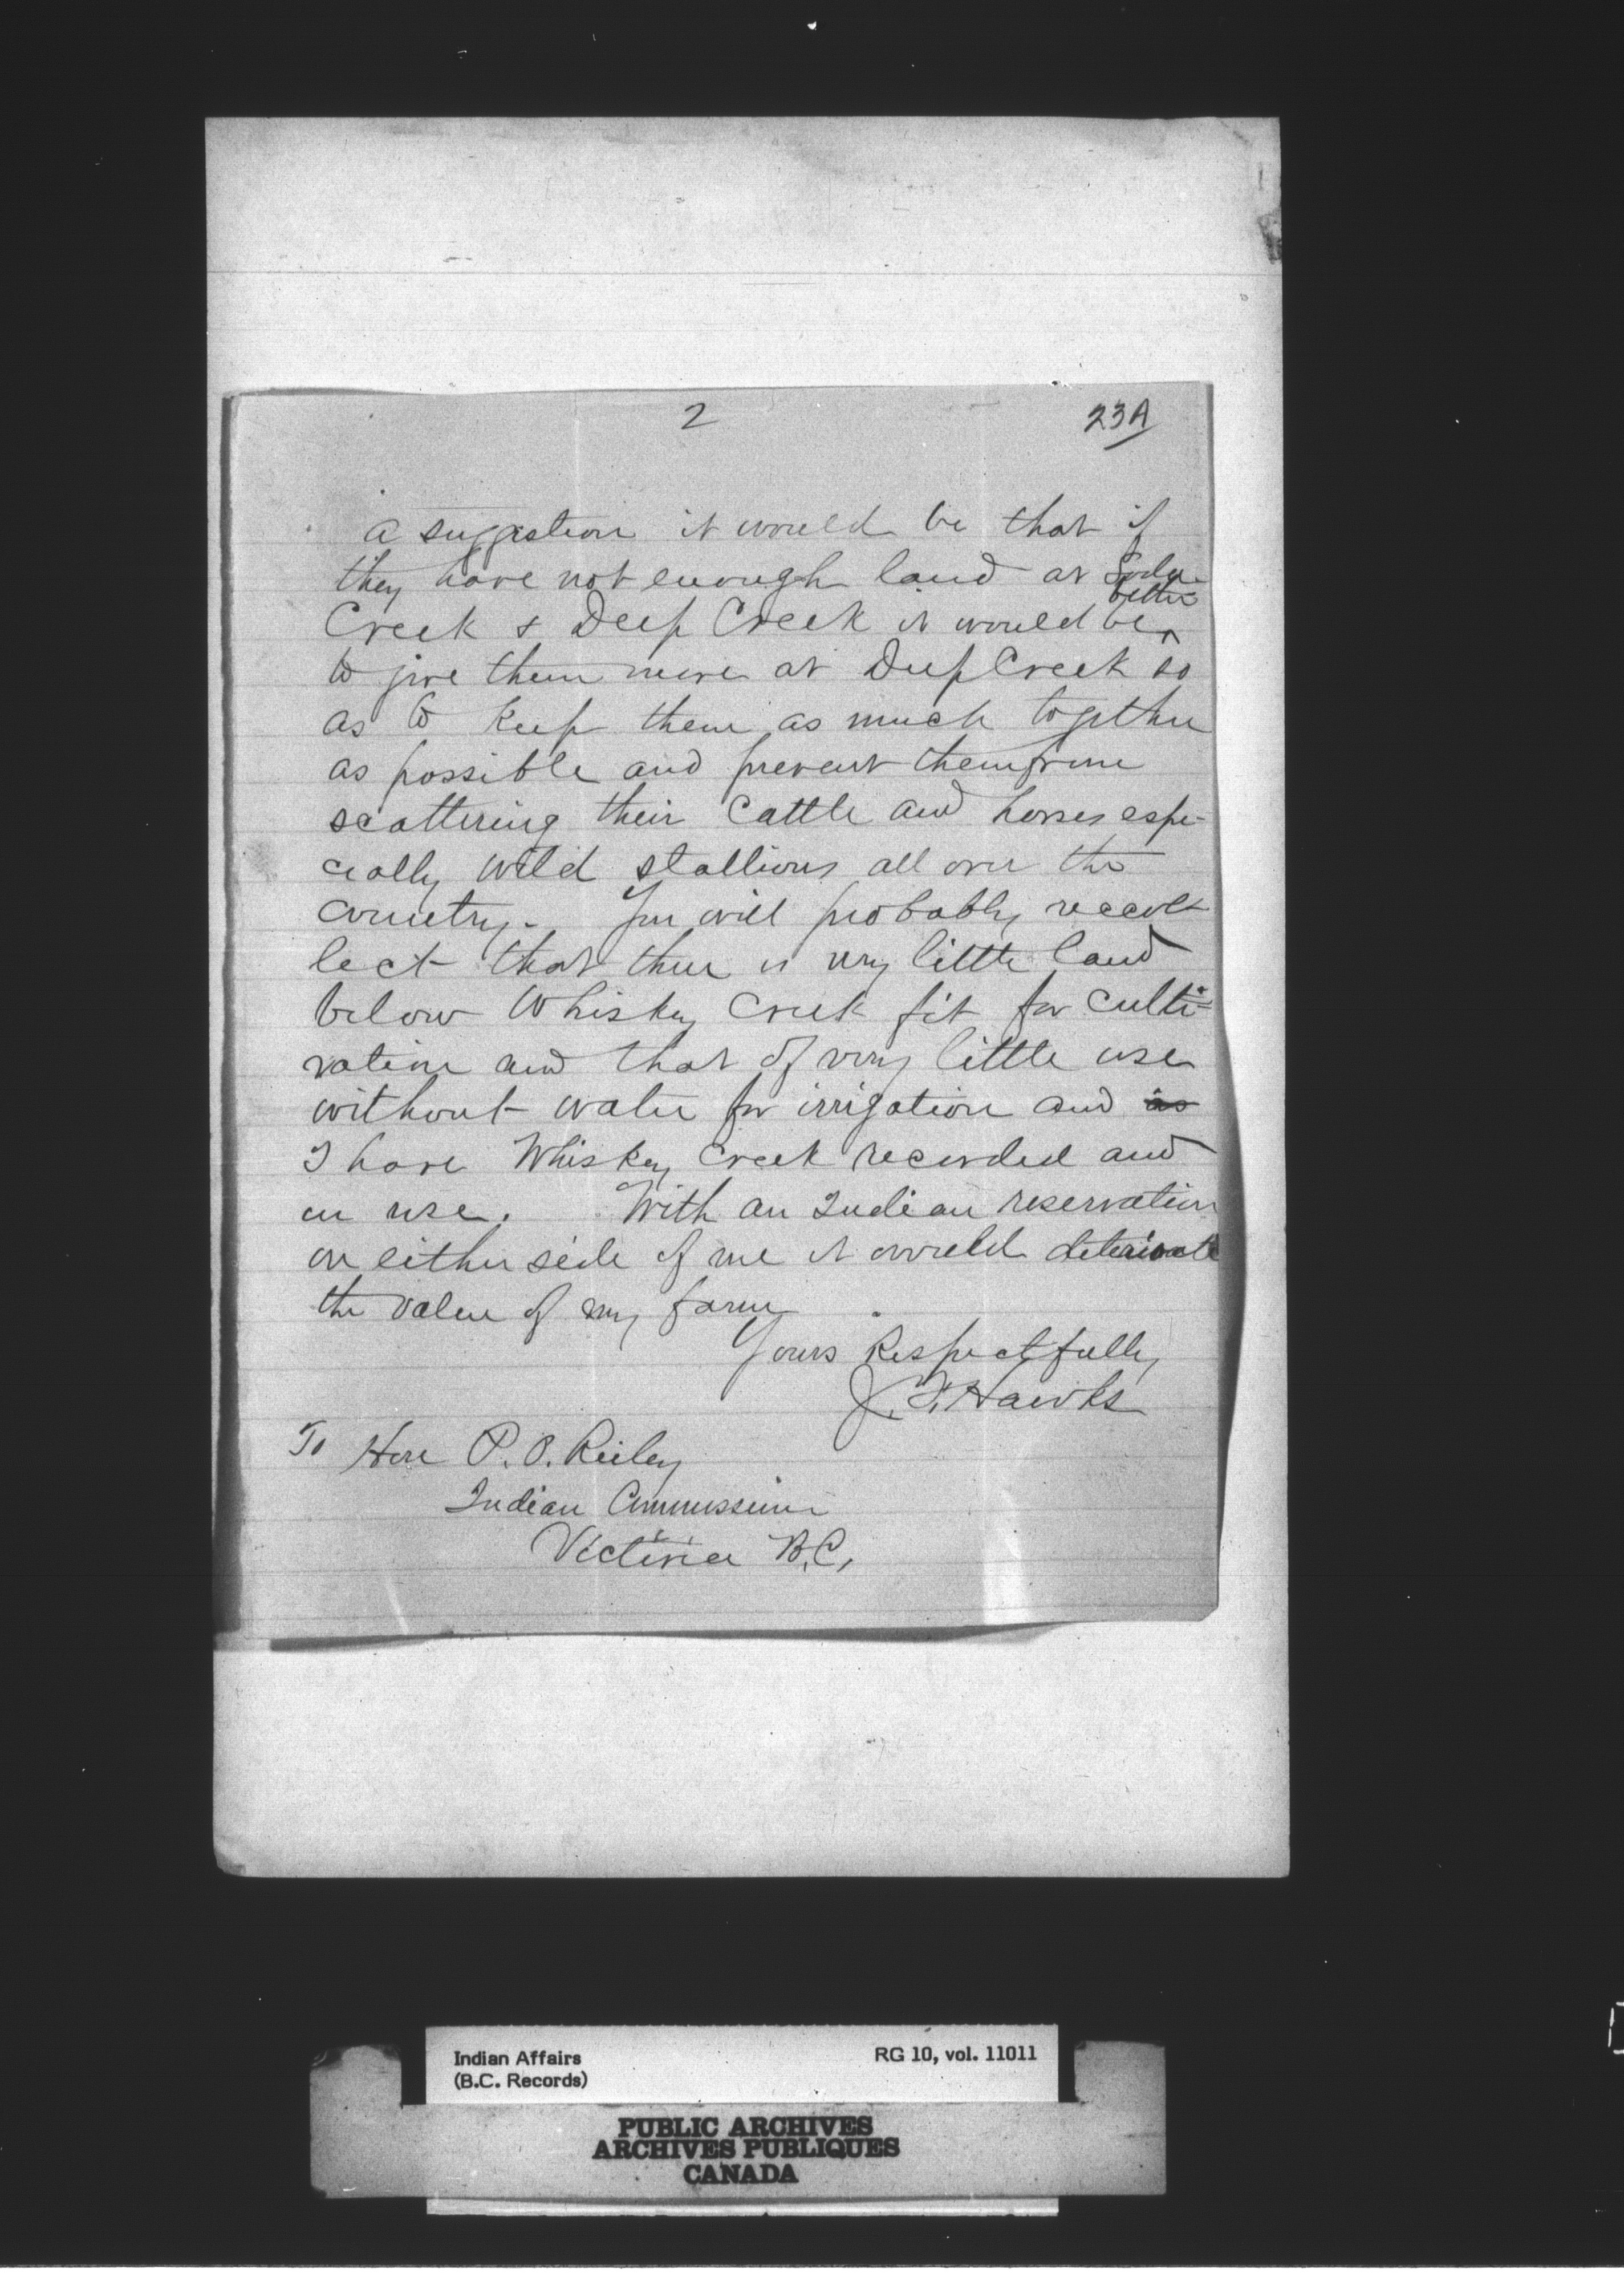 2
23A
a suggestion it would be that if
they have not enough land at Soda
better
Creek & Deep Creek it would be ^
to give them more at Deep Creek so
as to keep them as much together
as possible and prevent them from
scattering their Cattle and horses espe-
cially wild stallions all over the
country. You will probably recol-
lect that there is very little land
below Whisky Creek fit for culti-
vation and that of very little use
without water for irrigation and as
I have Whiskey Creek recorded and
in use. With an Indian reservation
on either side of me it would deteriorate
the value of my farm
Yours Respectfully
J. F. Hawks
To Hon P. O. Reiley
Indian Commission
Victoria B.C.
Indian Affairs
RG 10, vol. 11011
(B.C. Records)
PUBLIC ARCHIVES
ARCHIVES PUBLIQUES
CANADA